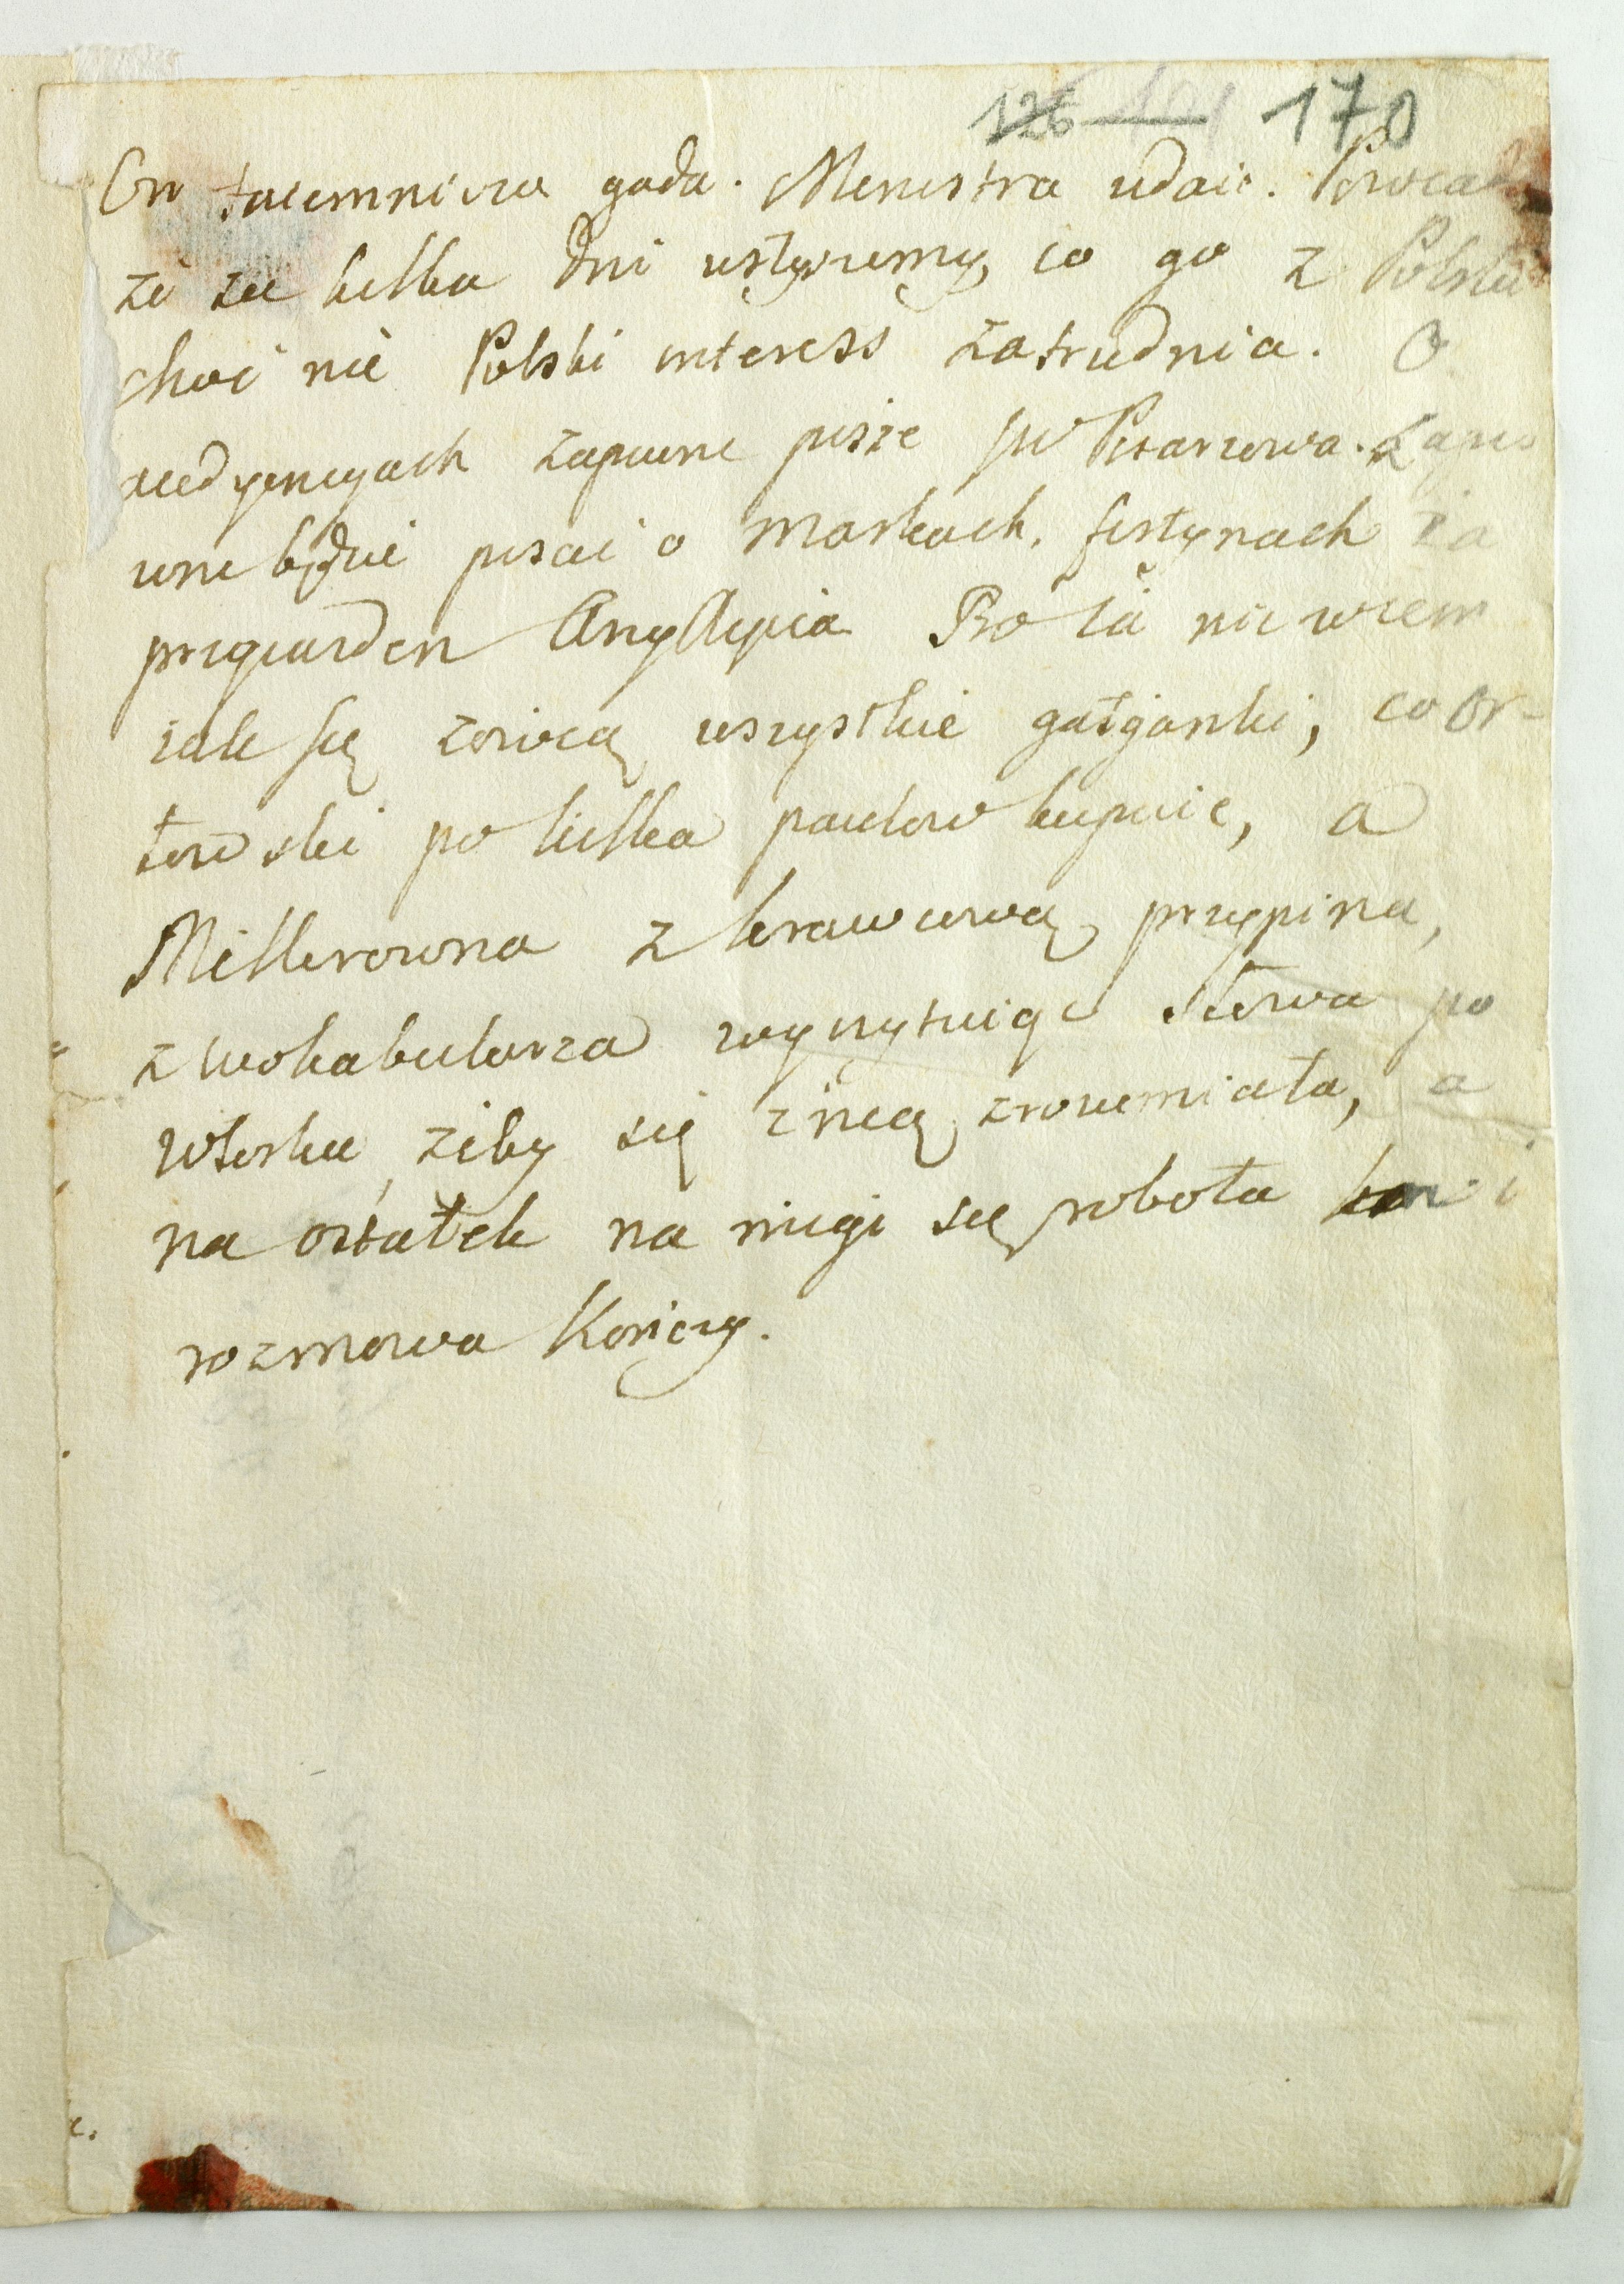 126 170
On taiemnicza gada. Menistra udaie.
że za kilka dni usłyszemy, co go z Polski
choć nie Polski interess zatrudnia. O
audyencyach zapewne pisze JW Pisarzowa. Zape
wne będzie pisać o maskach, festynach
Bo ia nie wiem
iak się zowią wszystkie gałganki, co Or-
łowski po kilka paulow kupuie, a
Millerowna z krawcową przypina,
z wokabularza wyczytuiąc słowa po
włosku, żeby się z nią zrozumiała, a
na ostatek na migi się robota i
rozmowa kończy.